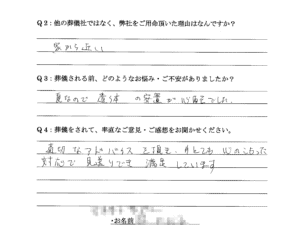 Q2：他の葬儀社ではなく、弊社をご用命頂いた理由はなんですか？
家から近い
Q3：葬儀される前、どのようなお悩み・ご不安がありましたか？
夏なので遺体の安置が心配でした。
Q4：葬儀をされて、率直なご意見・ご感想をお聞かせください。
適切なアドバイスを頂き、とても心のこもった
対応で見送りでき満足しています
・お名前